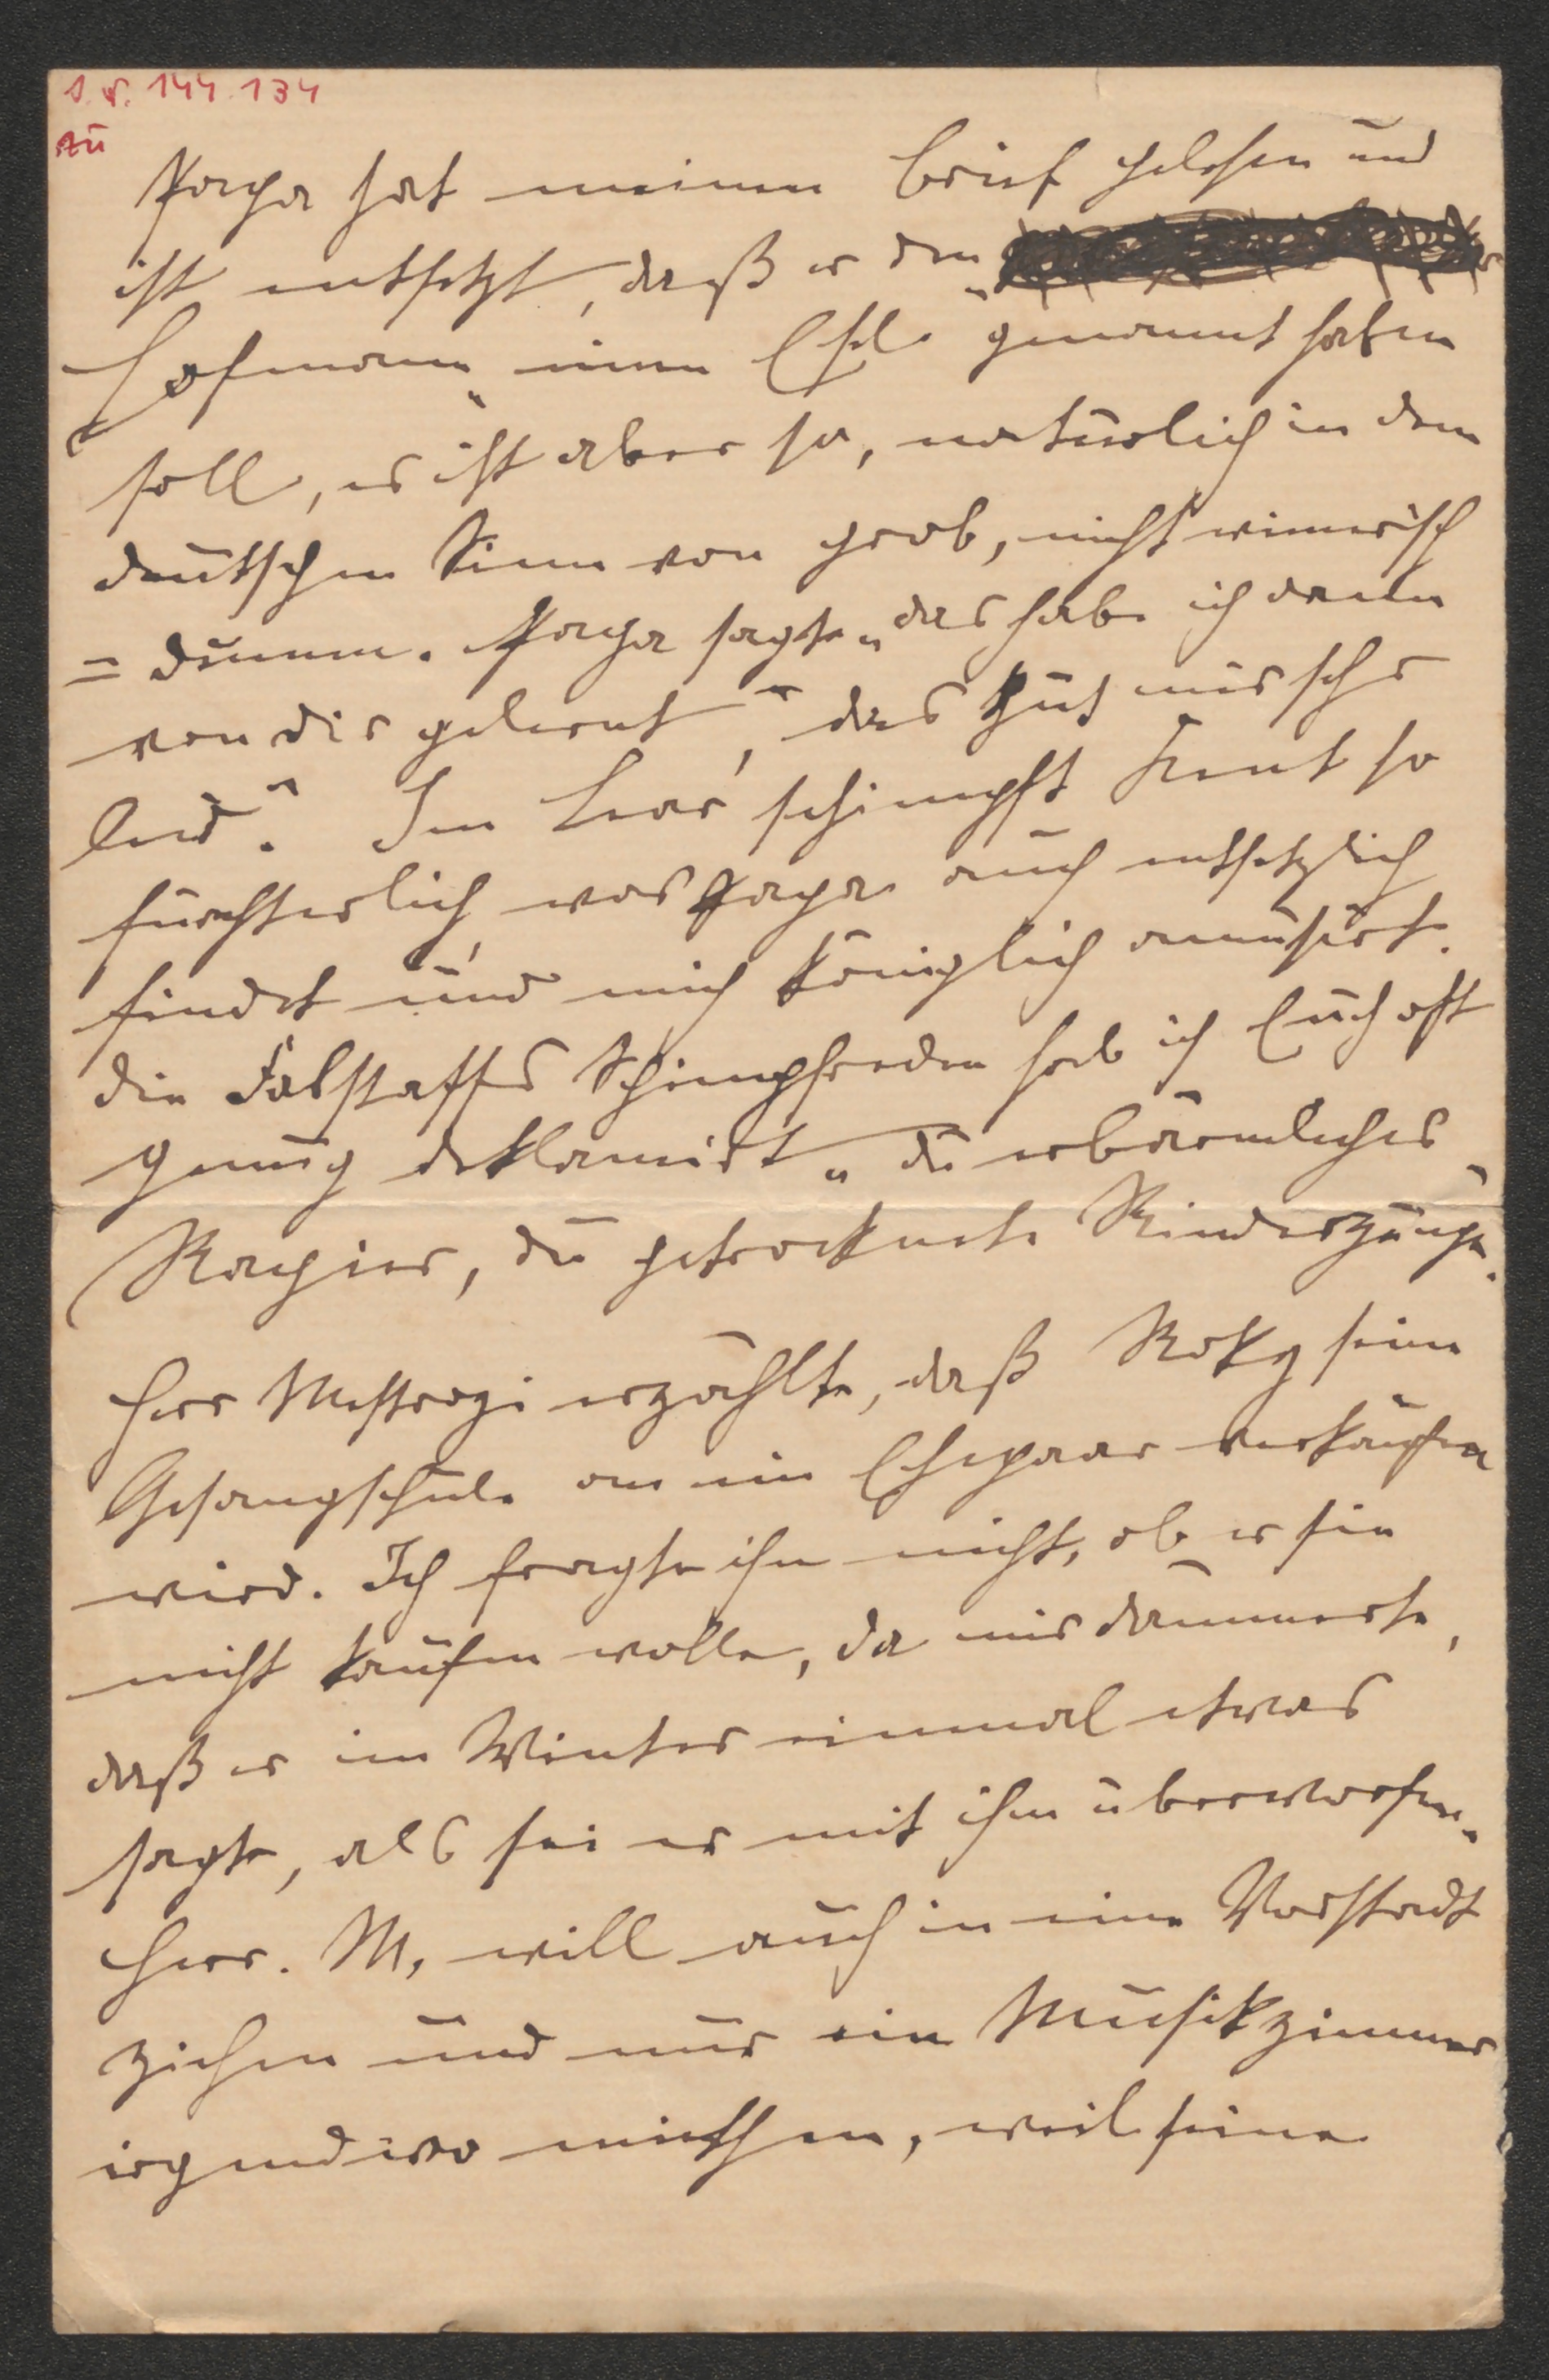 144.134
zu
Papa hat meinen Brief gelesen und
ist entsetzt, daß er den
Hofmann einen Esel genannt haben
soll, es ist aber so, natürlich in dem
deutschen Sinn von grob, nicht wienerisch
= dumm. Papa sagte „das hab ich denn
von dir gelernt“, das thut mir sehr
leid“. Im Lear schimpft Kent so
fürchterlich, was Papa auch entsetzlich
findet und mich königlich amüsirt.
die Falstaffs Schimpfreden hab ich Euch oft
genug deklamirt „du erbärmliches
Rapier, du getrocknete Rinderzunge“.
Herr Mestrozi erzählte, daß Roky seine
Gesangschule an ein Ehepaar verkaufen
wird. Ich fragte ihn nicht, ob er sie
nicht kaufen wolle, da mir dämmerte,
daß er im Winter einmal etwas
sagte, als sei er mit ihm überworfen.
Herr. M, will auch in eine Vorstadt
ziehen und nur ein Musikzimmer
irgendwo miethen, weil seine